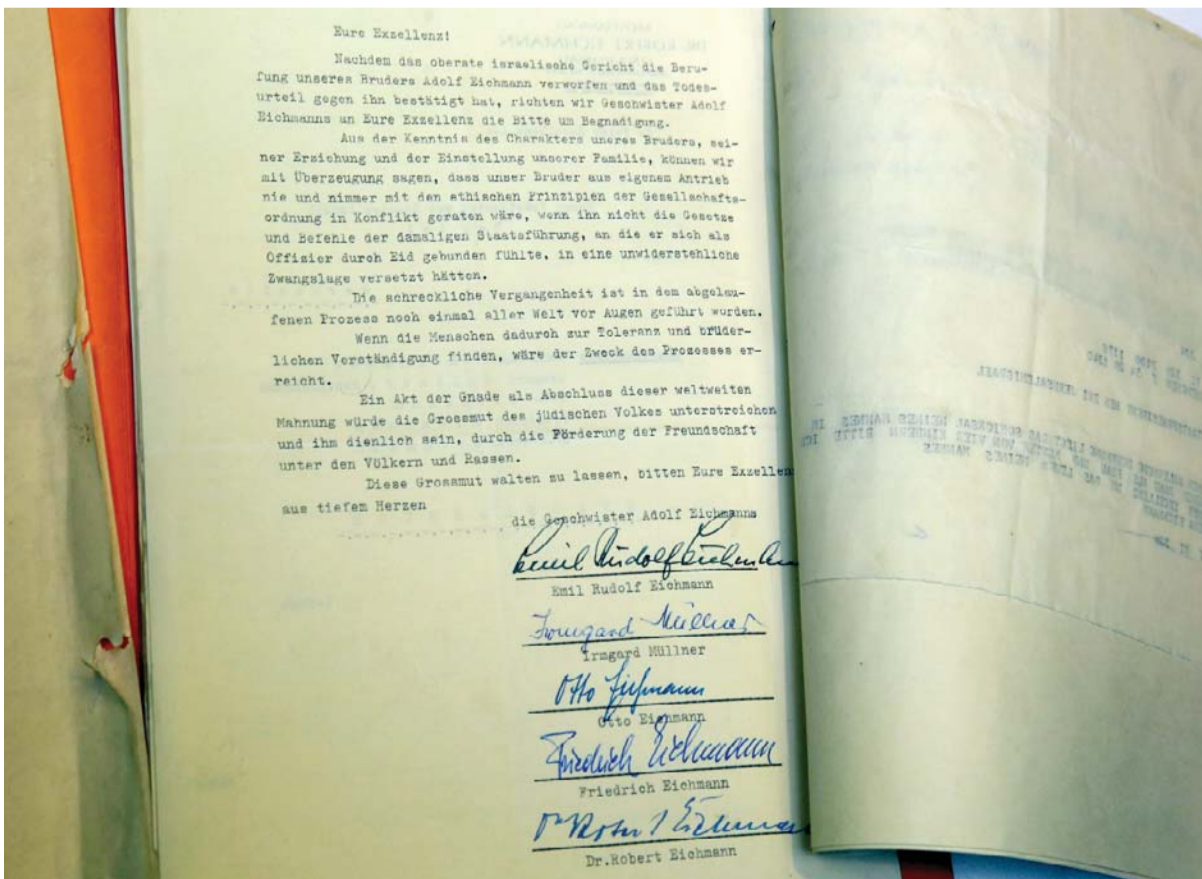 Eure Exzellenz!
Nachdem das oberste israelische Gericht die Beru-
fung unseres Bruders Adolf Eichmann verworfen und das Todes-
urteil gegen ihn bestätigt hat, richten wir Geschwister Adolf
Eichmanns an Eure Exzellenz die Bitte um Begnadigung.
Aus der Kenntnis des Charakters unseres Bruders, sei-
ner Erziehung und der Einstellung unserer Familie, können wir
mit Überzeugung sagen, dass unser Bruder aus eigenem Antrieb
nie und nimmer mit den ethischen Prinzipien der Gesellschafts-
ordnung in Konflikt geraten wäre, wenn ihn nicht die Gesetze
und Befehle der damaligen Staatsführung, an die er sich als
Offizier durch Eid gebunden fühlte, in eine unwiderstehliche
Zwangslage versetzt hätten.
Die schreckliche Vergangenheit ist in dem abgelau-
fenen Prozess noch einmal aller Welt vor Augen geführt worden.
Wenn die Menschen dadurch zur Toleranz und brüder-
lichen Verständigung finden, wäre der Zweck des Prozesses er-
reicht.
Ein Akt der Gnade als Abschluss dieser weltweiten
Mahnung würde die Grossmut des jüdischen Volkes unterstreichen
und ihm dienlich sein, durch die Förderung der Freundschaft
unter den Völkern und Rassen.
Diese Grossmut walten zu lassen, bitten Eure Exzellen
aus tiefem Herzen
die Geschwister Adolf Eichmanns
Emil Rudolf Eichmann
Emil Rudolf Eichmann
Irmgard Müllner
Irmgard Müllner
Otto Eichmann
Otto Eichmann
Friedrich Eichmann
Friedrich Eichmann
Dr Robert Eichmann
Dr.Robert Eichmann
DR. ROBERT EICHMANN
SCHICKSAL MEINES MANNES
VON VIER KINDERN BITTE ICH
LEBEN MEINES MANNES